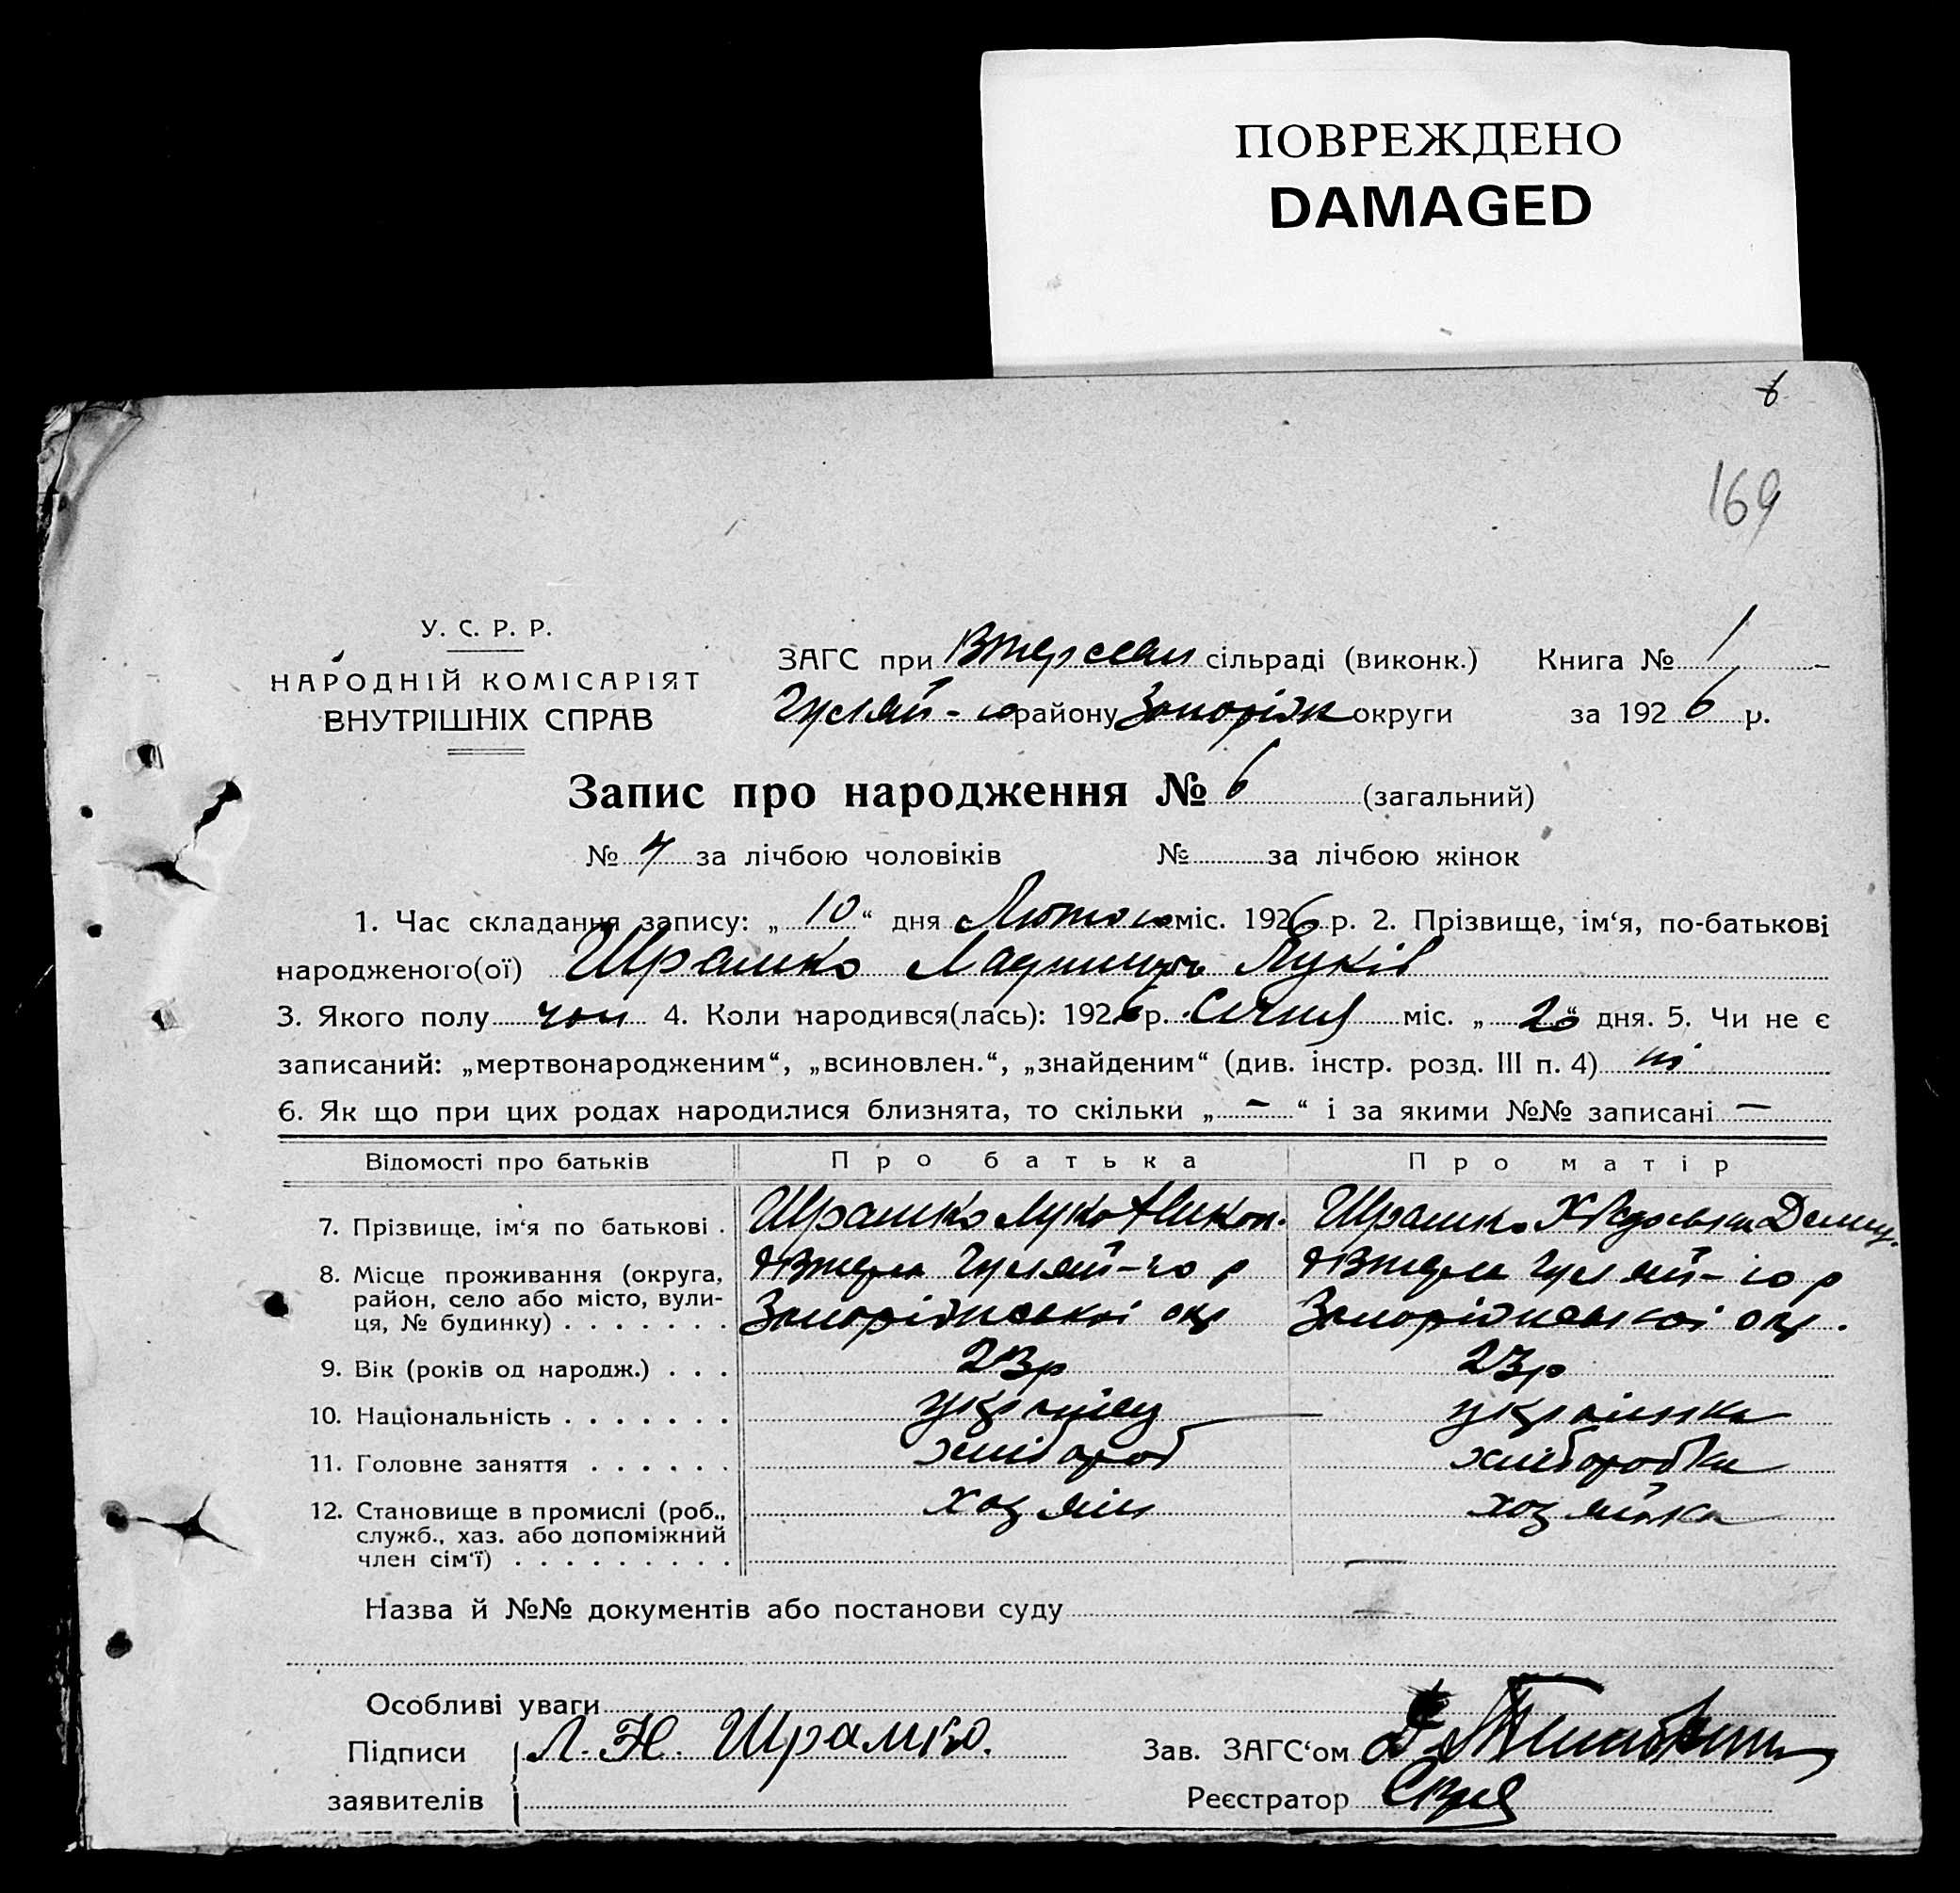 ПОВРЕЖДЕНО
DAMAGED
6
169
У. С. Р. Р.
НАРОДНІЙ КОМІСАРІЯТ
ВНУТРІШНІХ СПРАВ
ЗАГС при сільраді (виконк.) Книга № 1
Гуляй- району Запоріж округи за 1926 р.
Запис про народження № 6 (загальний)
№ 4 за лічбою чоловіків № за лічбою жінок
1. Час складання запису: „ 10 “ дня Лютого міс. 1926 р. 2. Прізвище, ім‘я, по-батькові
народженого(ої) Шрамко Луків
3. Якого полу чол 4. Коли народився(лась): 1926 р. Січня міс. „ 20 “ дня. 5. Чи не є
записаний: „мертвонародженим“, „всиновлен.“, „знайденим“ (див. інстр. розд. III п. 4) ні
6. Як що при цих родах народилися близнята, то скільки „ — “ і за якими №№ записані —
Відомості про батьків Про батька Про матір
7. Прізвище, ім‘я по батькові . Шрамко Лука Никон. Шрамко
8. Місце проживання (округа, Гуляй-го р Гуляй-го р
район, село або місто, вули- Запоріжської окр Запоріжської окр.
ця, № будинку) . . . . . . .
9. Вік (років од народж.) . . . 23р 23р
10. Національність . . . . . . . українец українка
11. Головне заняття . . . . . . хлібороб хліборобка
12. Становище в промислі (роб., хозяін хозяйка
служб., хаз. або допоміжний
член сім‘ї) . . . . . . . . . —
Назва й №№ документів або постанови суду —
Особливі уваги
Підписи Л. Н. Шрамко. Зав. ЗАГС‘ом
заявителів Реєстратор